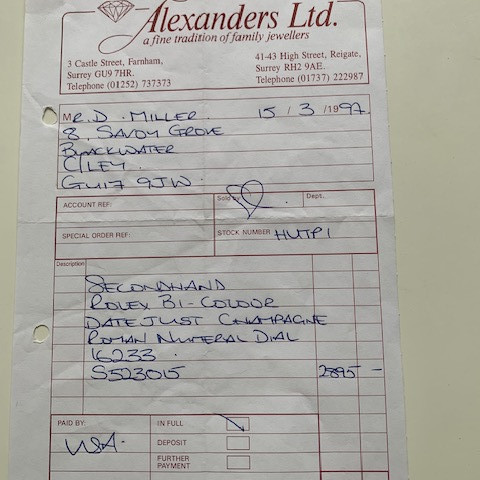 Alexanders Ltd.
a fine tradition of family jewellers
3 Castle Street, Farnham,
Surrey GU9 7HR.
Telephone (01252) 737373
41-43 High Street, Reigate,
Surrey RH2 9AE.
Telephone (01737) 222987
MR. D. MILLER. 15 / 3 /1997.
8, SAVOY GROVE
BLACKWATER
C/LEY.
GU17 9JW.
ACCOUNT REF:
Sold by
Dept.
SPECIAL ORDER REF:
STOCK NUMBER HUTP1
Description
SECONDHAND
ROLEX BI-COLOUR
DATEJUST CHAMPAGNE
ROMAN NUMERAL DIAL
16233.
S523015 2895 -
PAID BY:
IN FULL
DEPOSIT
FURTHER
PAYMENT